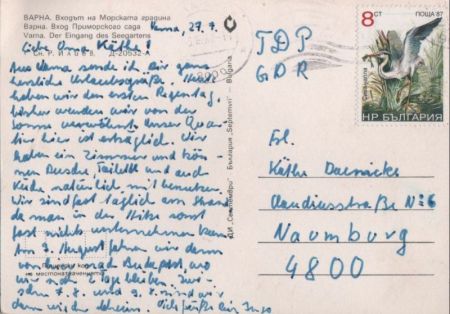 ВАРНА. Входът на Морската градина
Варна. Вход Приморского сада
Varna. Der Eingang des Seegartens
Сн. Р. Илиев Д-20852-А
Varna, 27. 7.
Liebe Oma Käthe!
Aus Varna sende ich Dir ganz
herzliche Urlaubsgrüße. Heute
haben wir den ersten Regentag,
bisher wurden wir von der
Sonne verwöhnt. Unser Quar-
tier hier ist erträglich. Wir
haben ein Zimmer und kön-
nen Dusche, Toilette und auch
Küche natürlich mit benutzen.
Wir sind fast täglich am Strand,
da man in der Hitze sonst
fast nichts unternehmen kann.
Am 3. August fahren wir dann
nach Budapest, wo
wir noch 2 Tage bleiben.
7. 8. und 9. 8. sind wir
dann wieder daheim.
ДИ „Септември“ България „Septemvri“ - Bulgaria
8 СТ ПОЩА '87
НР БЪЛГАРИЯ
TDP
GDR
Frl.
Käthe
Claudiusstraße № 6
Naumburg
4800